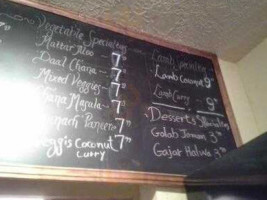 Vegetable Specialties
Mattar Aloo 7
Daal Chana 7
Mixed Veggies 7
Chana Masala 7
Paneer 7
Veggis Coconut 7
Curry
Lamb Specialties
Lamb Coconut 9
Lamb Curry 9
Desserts Specialties
Golab Jaman 3
Gajar Halwa 3